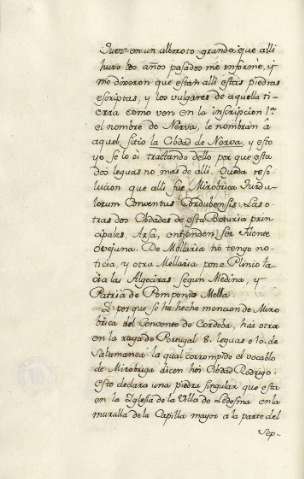 Jues en un alboroto grande que alli
huvo los años pasados me informé, y
me dixeron que están alli estas piedras
escriptas, y los vulgares de aquella ti-
erra como ven en la inscripcion 1ª
el nombre de Norva, le nombran á
aquel sitio la Cibdad de Norva, y esto
yo lo oí tratando dello por que esta
dos leguas no mas de alli. Queda reso-
lucion que alli fue Mirobriga Turdu-
lorum Conventus Cordubensis. Las o-
tras dos Cibdades de esta Beturia prin-
cipales Arsa, entienden ser Fuente
ovejuna. De Mellaria no tengo no-
ticia, y otra Mellaria pone Plinio há-
cia las Algeciras según Medina, y
Patria de Pomponio Mella.
Y por que se ha hecho mencion de Miro-
briga del Convento de Cordoba, hai otra
en la raya de Portugal 8. leguas o 10. de
Salamanca: la qual corrompido el vocablo
de Mirobriga dicen hoi Cibdad Rodrigo:
esto declara una piedra singular que esta
en la Iglesia de la Villa de Ledesma en la
muralla de la Capilla mayor á la parte del
Sep-